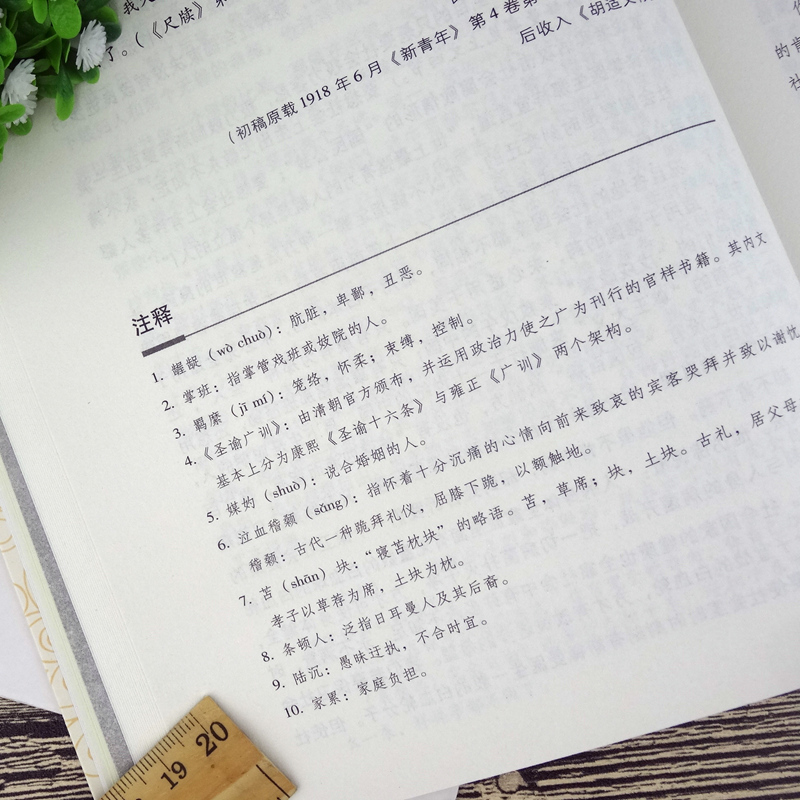 我
了。（《尺牍》第
（初稿原载1918年6月《新青年》第4卷第
后收入《胡适文
注释
1. 龌龊（wò chuò）：肮脏，卑鄙，丑恶。
2. 掌班：指掌管戏班或妓院的人。
3. 羁縻（jī mí）：笼络，怀柔；束缚，控制。
4.《圣谕广训》：由清朝官方颁布，并运用政治力使之广为刊行的官样书籍。其内文
基本上分为康熙《圣谕十六条》与雍正《广训》两个架构。
5. 媒妁（shuò）：说合婚姻的人。
6. 泣血稽颡（sǎng）：指怀着十分沉痛的心情向前来致哀的宾客哭拜并致以谢忱
稽颡：古代一种跪拜礼仪，屈膝下跪，以额触地。
7. 苫（shān）块：“寝苫枕块”的略语。苫，草席；块，土块。古礼，居父母
孝子以草荐为席，土块为枕。
8. 条顿人：泛指日耳曼人及其后裔。
9. 陆沉：愚昧迂执，不合时宜。
10. 家累：家庭负担。
的肯
社
19 20